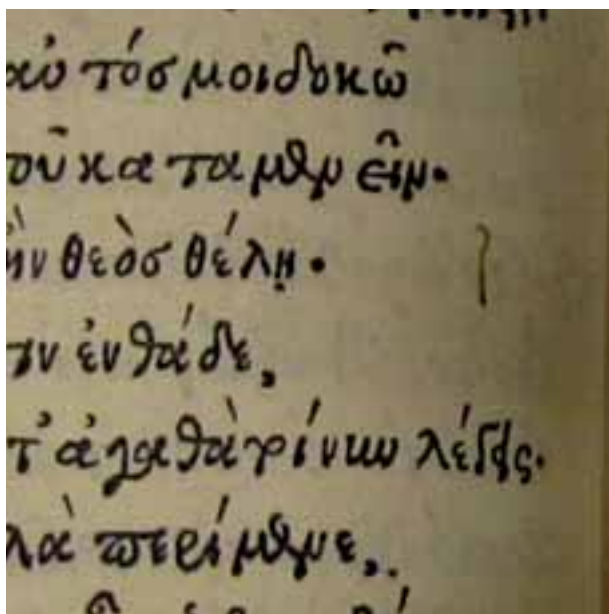 αὐτόσ μοι δοκῶ
οῦ καταμένειν.
ἢν θεὸσ θέλῃ.
ιν ἐνθάδε,
τ' ἀγαθὰ τοίνυν λέγεις.
λὰ περίμενε,.